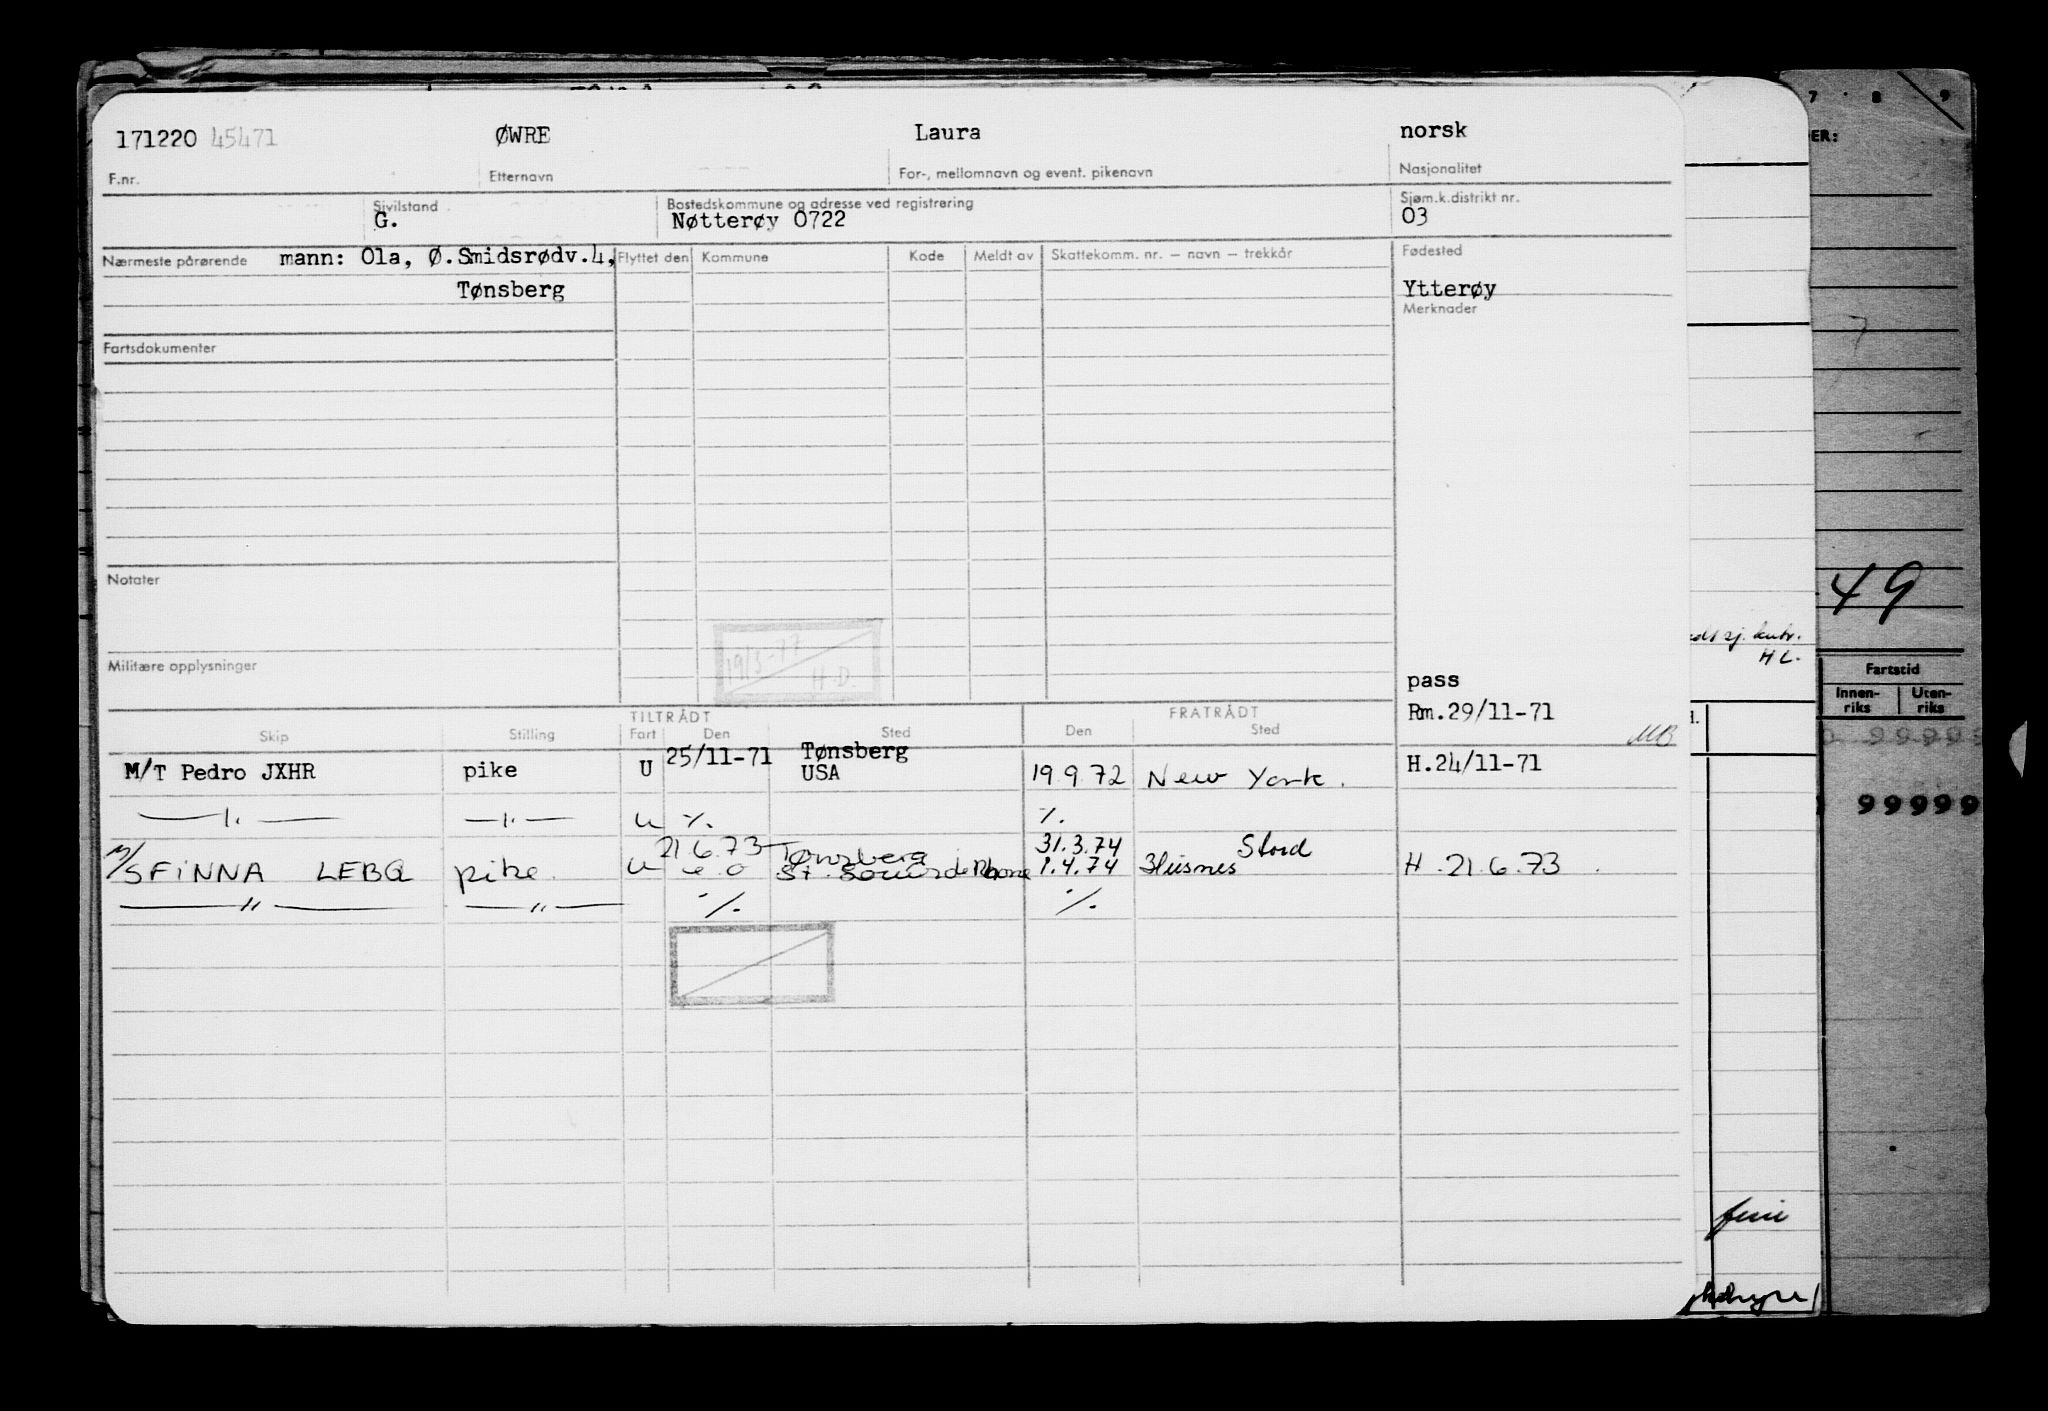 171220 45471 ØWRE Laura norsk
F.nr. Etternavn For-, mellomnavn og event. pikenavn Nasjonalitet
Sivilstand Bostedskommune og adresse ved registrering Sjøm.k.distrikt nr.
G. Nøtterøy 0722 03
Nærmeste pårørende mann: Ola, Ø.Smidsrødv.4, Flyttet den Kommune Kode Meldt av Skattekomm. nr. – navn – trekkår Fødested
Tønsberg Ytterøy
Merknader
Fartsdokumenter
Notater
19/5-77
H.D.
Militære opplysninger
pass
Rm.29/11-71
MB
TILTRÅDT FRATRÅDT
Skip Stilling Fart Den Sted Den Sted
M/T Pedro JXHR pike U 25/11-71 Tønsberg USA 19.9.72 New York. H.24/11-71
—"— —"— U ./. ./.
M/S FINNA LEBQ pike. U 21.6.73 Tønsberg 31.3.74 Stord
1.4.74 Husnes H.21.6.73.
—"— —"— ./. ./.
7 8 9
ER:
49
sj. kntr.
HL.
Fartstid
Innen-riks Uten-riks
99999
99999